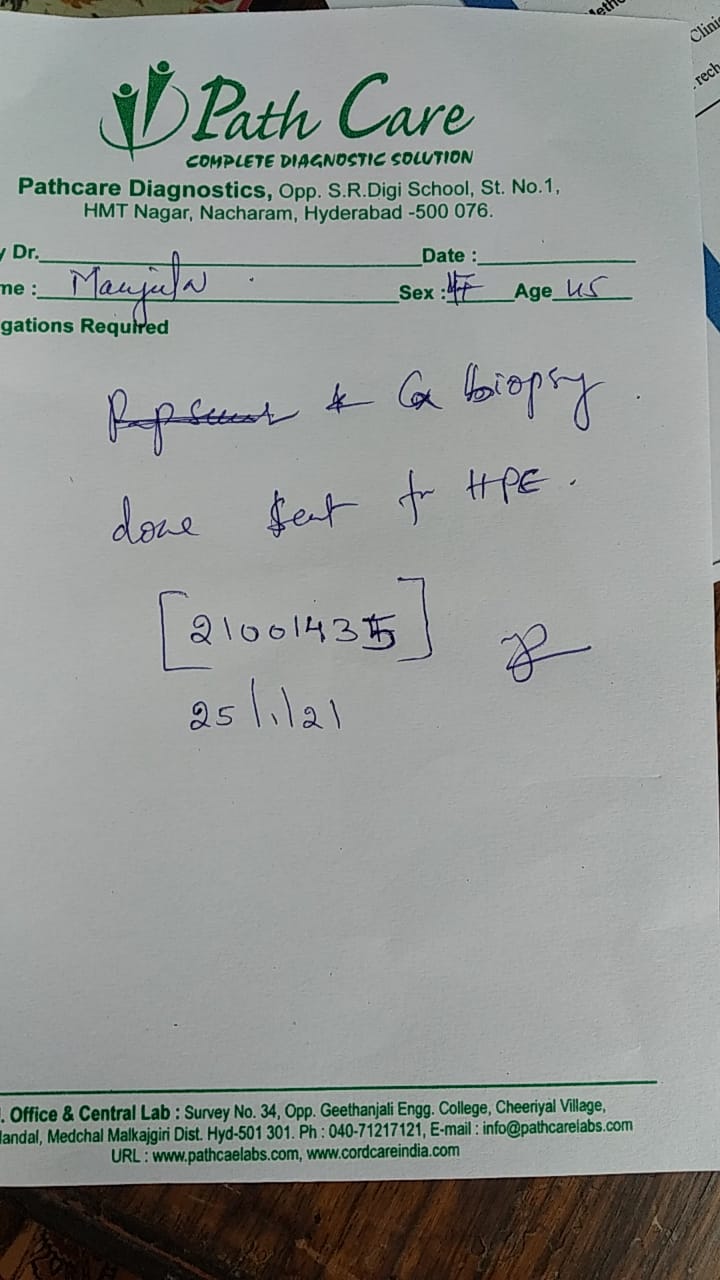 Metho
Clinic
rech
Path Care
COMPLETE DIAGNOSTIC SOLUTION
Pathcare Diagnostics, Opp. S.R.Digi School, St. No.1,
HMT Nagar, Nacharam, Hyderabad -500 076.
y Dr. Date :
me : Manjula Sex : F Age 45
gations Required
& Cx biopsy.
done Sent for HPE.
[21001435]
25/1/21
. Office & Central Lab : Survey No. 34, Opp. Geethanjali Engg. College, Cheeriyal Village,
andal, Medchal Malkajgiri Dist. Hyd-501 301. Ph : 040-71217121, E-mail : info@pathcarelabs.com
URL : www.pathcaelabs.com, www.cordcareindia.com